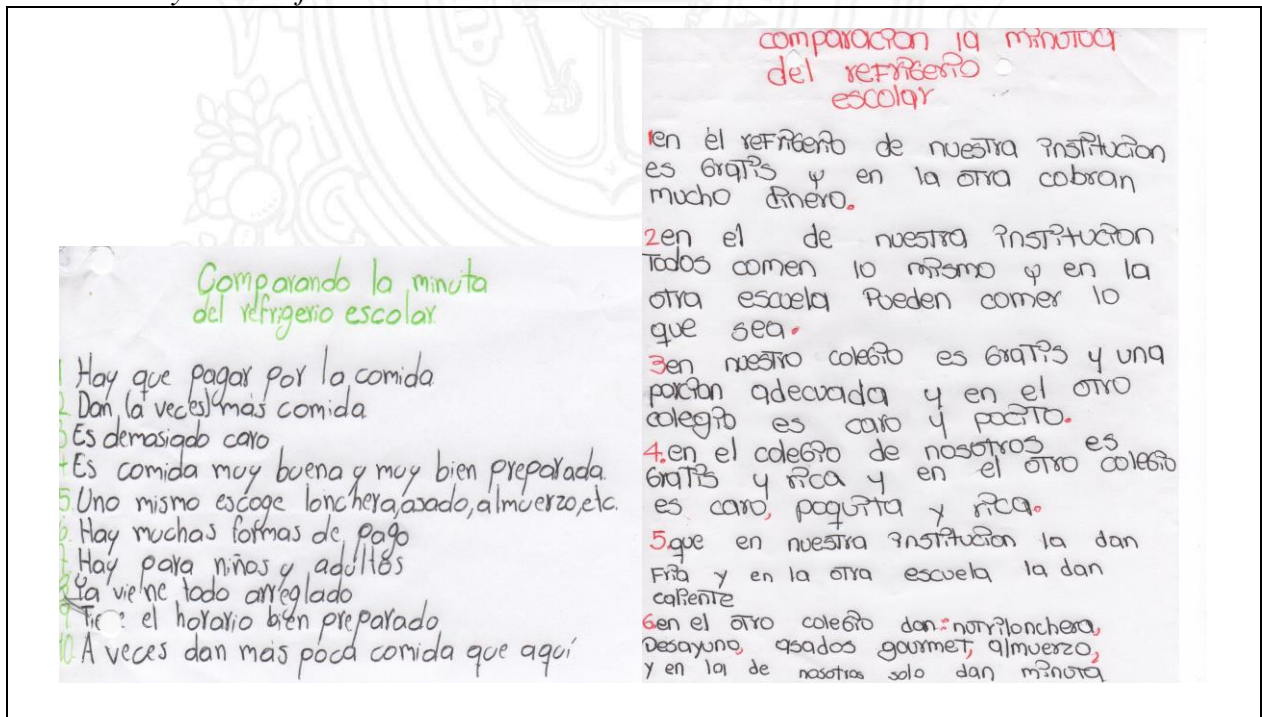 Comparando la minuta
del refrigerio escolar
1 Hay que pagar por la comida
2 Dan, (a veces) más comida
3 Es demasiado caro
4 Es comida muy buena y muy bien preparada.
5. Uno mismo escoge lonchera, asado, almuerzo, etc.
6. Hay muchas formas de pago
7 Hay para niños y adultos
8 Ya viene todo arreglado
9 el horario bien preparado
10 A veces dan más poca comida que aquí
comparacion la minuta
del refrigerio
escolar
1en el refrigerio de nuestra institucion
es Gratis y en la otra cobran
mucho dinero.
2en el de nuestra institucion
Todos comen lo mismo y en la
otra escuela Pueden comer lo
que sea.
3en nuestro colegio es Gratis y una
porcion adecuada y en el otro
colegio es caro y pocito.
4.en el colegio de nosotros es
Gratis y rica y en el otro colegio
es caro, poquita y rica.
5.que en nuestra institucion la dan
Fria y en la otra escuela la dan
caliente
6en el otro colegio dan: nutrilonchera,
Desayuno, asados gourmet, almuerzo,
y en la de nosotros solo dan minuta